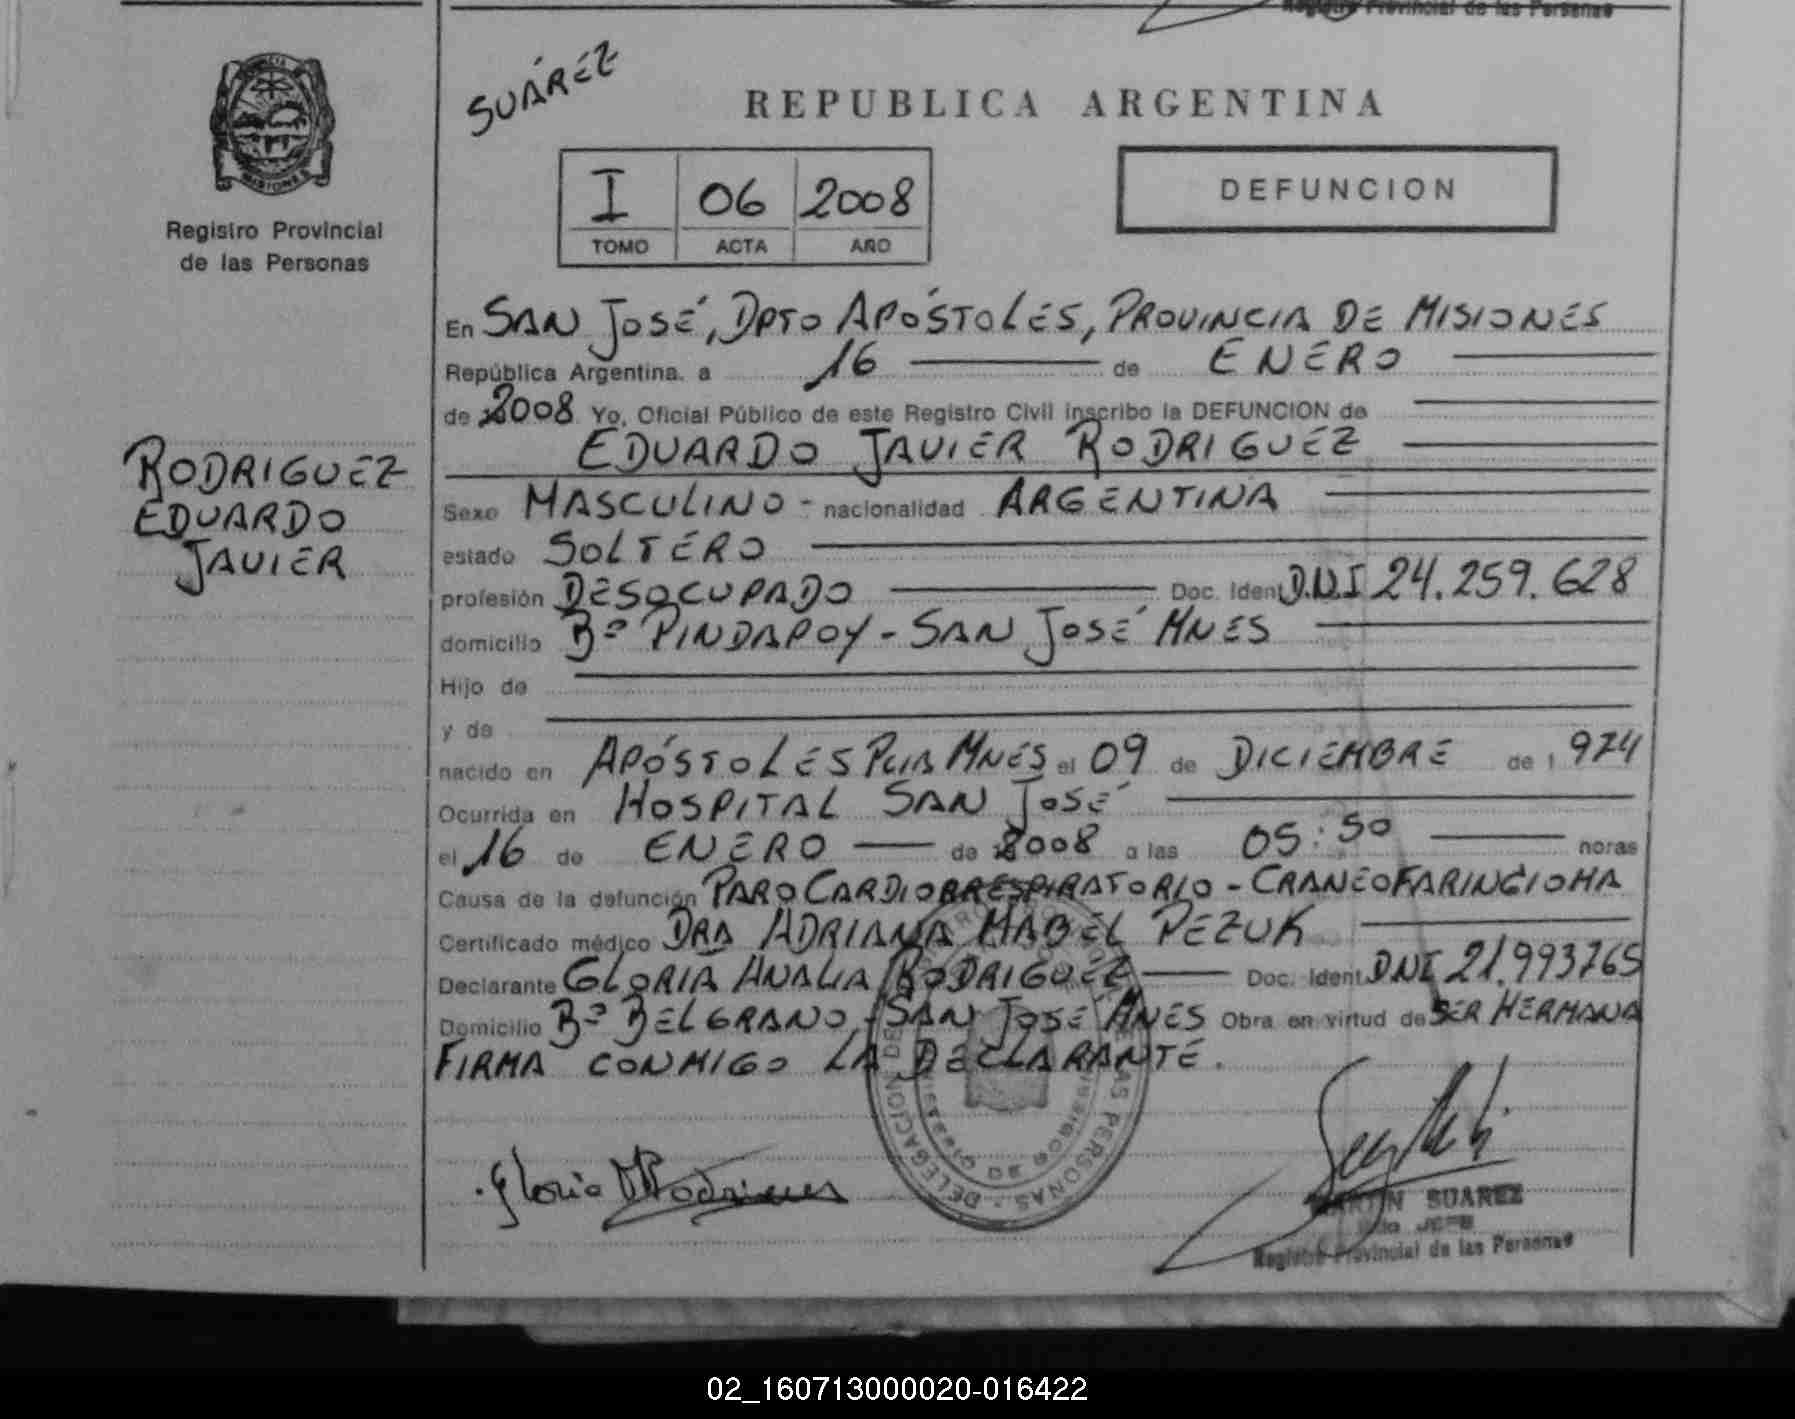 Registro Provincial de las Personas
SUÁREZ
REPUBLICA ARGENTINA
I 06 2008
TOMO ACTA AÑO
DEFUNCION
MISIONES
Registro Provincial
de las Personas
En SAN JOSÉ, DPTO APÓSTOLES, PROVINCIA DE MISIONES
República Argentina, a 16 de ENERO
de 2008 Yo, Oficial Público de este Registro Civil inscribo la DEFUNCION de
EDUARDO JAVIER RODRIGUEZ
RODRIGUEZ
EDUARDO
JAVIER
Sexo MASCULINO - nacionalidad ARGENTINA
estado SOLTERO
profesión DESOCUPADO Doc. Ident D.N.I 24.259.628
domicilio Bº PINDAPOY - SAN JOSÉ MNES
Hijo de
y de
nacido en APÓSTOLES PCIA MNES el 09 de DICIEMBRE de 1 974
Ocurrida en HOSPITAL SAN JOSÉ
el 16 de ENERO de 2008 a las 05:50 horas
Causa de la defunción PARO CARDIORRESPIRATORIO - CRANEOFARINGIOMA
Certificado médico DRA ADRIANA MABEL PEZUK
Declarante GLORIA ANALIA RODRIGUEZ Doc. Ident DNI 21.993765
Domicilio Bº BELGRANO - SAN JOSE MNES Obra en virtud de SER HERMANA
FIRMA CONMIGO LA DECLARANTE.
DELEGACION
PERSONAS
Gloria Rodriguez
MARTIN SUAREZ
JEFE
Registro Provincial de las Personas
02_160713000020-016422